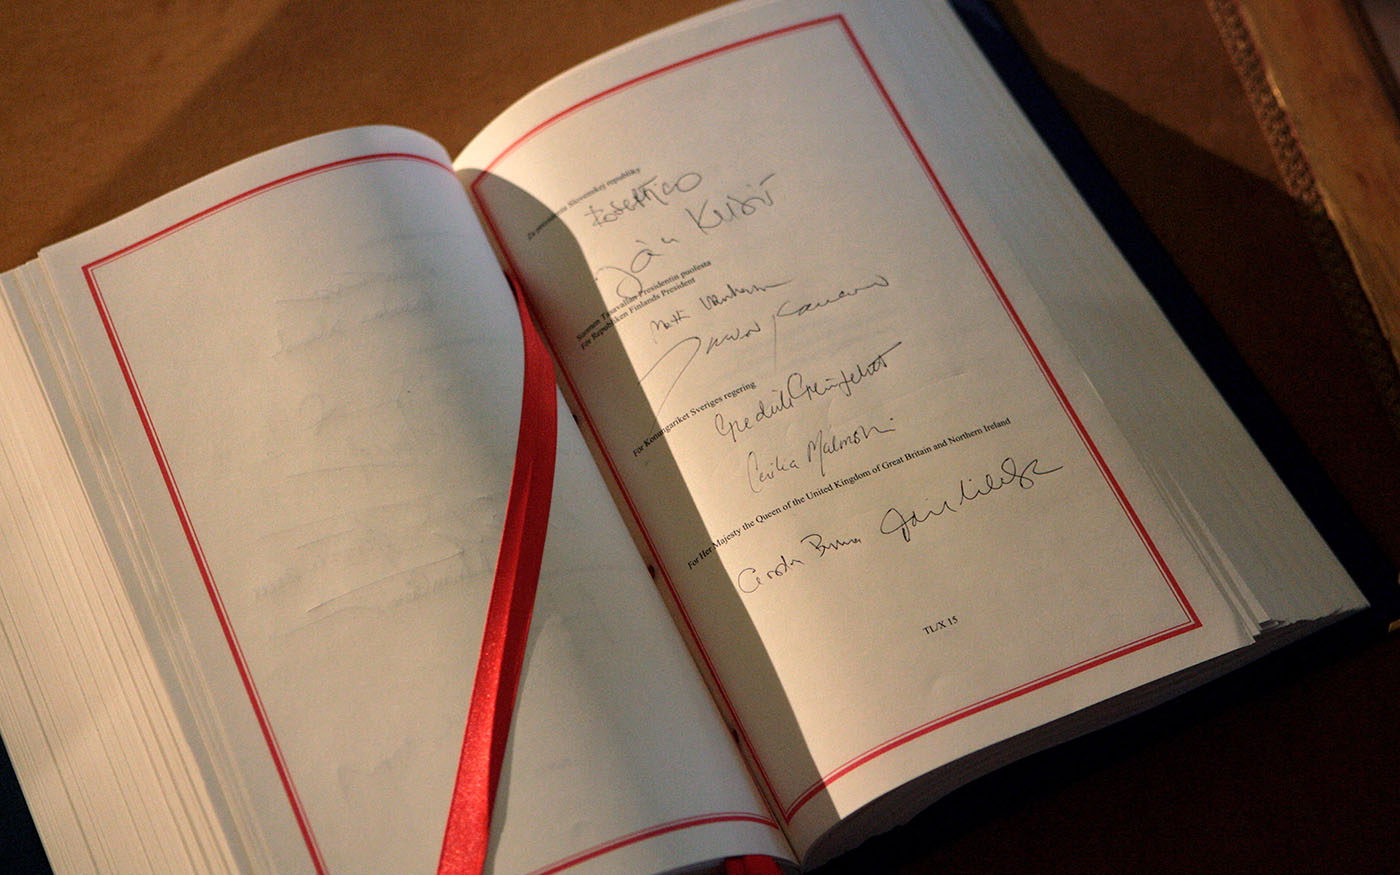 Za prezidenta Slovenskej republiky
Robert Fico
Ján Kubiš
Suomen Tasavallan Presidentin puolesta
För Republiken Finlands President
Matti Vanhanen
Ilkka Kanerva
För Konungariket Sveriges regering
Fredrik Reinfeldt
Cecilia Malmström
For Her Majesty the Queen of the United Kingdom of Great Britain and Northern Ireland
Gordon Brown David Miliband
TL/X 15